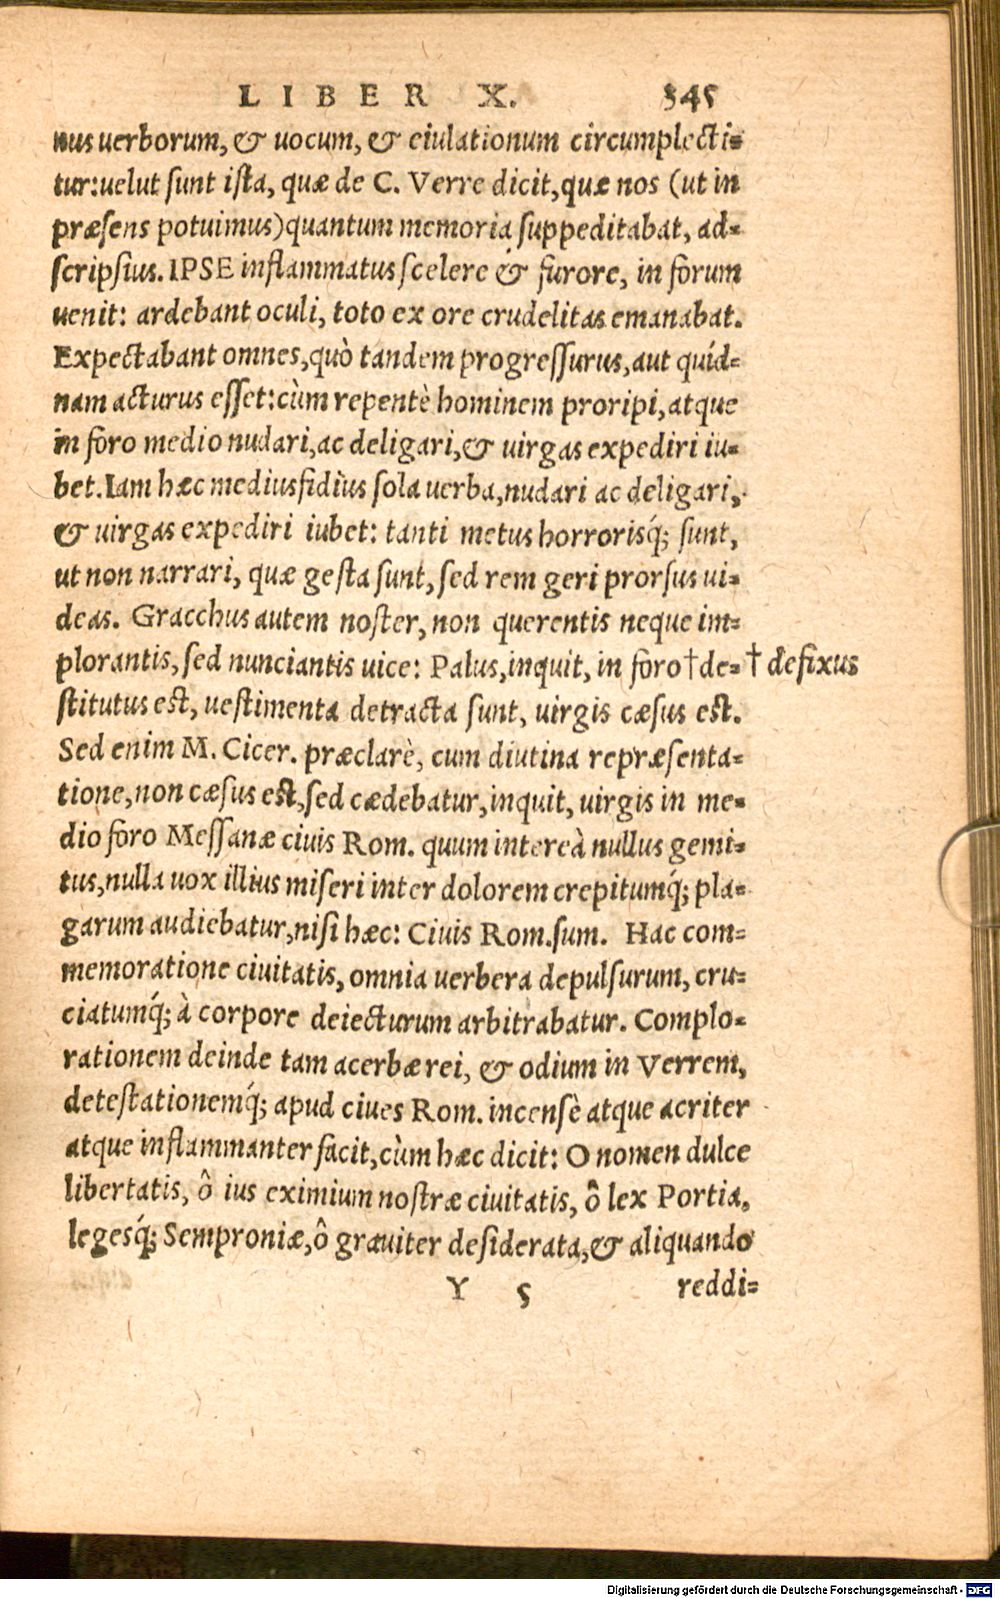 LIBER X. 345
nus verborum, & uocum, & eiulationum circumplecti-
tur: uelut sunt ista, quæ de C. Verre dicit, quæ nos (ut in
præsens potuimus) quantum memoria suppeditabat, ad-
scripsius. IPSE inflammatus scelere & furore, in forum
uenit: ardebant oculi, toto ex ore crudelitas emanabat.
Expectabant omnes, quò tandem progressurus, aut quíd-
nam acturus esset: cùm repentè hominem proripi, atque
in foro medio nudari, ac deligari, & uirgas expediri iu-
bet. Iam hæc mediusfidìus sola uerba, nudari ac deligari,
& uirgas expediri iubet: tanti metus horrorisq́; sunt,
ut non narrari, quæ gesta sunt, sed rem geri prorsus ui-
deas. Gracchus autem noster, non querentis neque im-
plorantis, sed nunciantis uice: Palus, inquit, in foro † de- † defixus
stitutus est, uestimenta detracta sunt, uirgis cæsus est.
Sed enim M. Cicer. præclarè, cum diutina repræsenta-
tione, non cæsus est, sed cædebatur, inquit, uirgis in me-
dio foro Messanæ ciuis Rom. quum intereà nullus gemi-
tus, nulla uox illius miseri inter dolorem crepitumq́; pla-
garum audiebatur, nisi hæc: Ciuis Rom. sum. Hac com-
memoratione ciuitatis, omnia uerbera depulsurum, cru-
ciatumq́; à corpore deiecturum arbitrabatur. Complo-
rationem deinde tam acerbæ rei, & odium in Verrem,
detestationemq́; apud ciues Rom. incensè atque acriter
atque inflammanter facit, cùm hæc dicit: O nomen dulce
libertatis, ô ius eximium nostræ ciuitatis, ô lex Portia,
legesq́; Semproniæ, ô grauiter desiderata, & aliquando
Y 5 reddi-
Digitalisierung gefördert durch die Deutsche Forschungsgemeinschaft - DFG